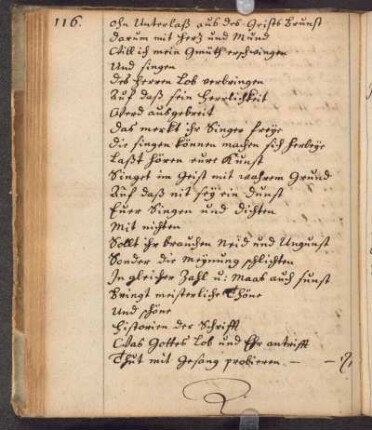 116.
ohn Unterlaß aus des Geists Brunst
darum mit Hertz und Mund
Will ich mein Gmüth erschwingen
Und singen
des Herren Lob verbringen
Auf daß sein Herrlichkeit
Werd ausgebreit
das merkt ihr Singer freye
die singen können machen sich herbeye
Laßt hören eure Kunst
Singet im Geist mit wahrem Grund
Auf daß nit sey ein Dunst
Euer Singen und dichten
Mit nichten
Sollt ihr brauchen Neid und Ungunst
Sonder die Meynung schlichten
In gleicher Zahl u: Maas auch sunst
Bringt meisterliche Thöne
Und schöne
Historien der Schrifft
Was Gottes Lob und Ehr antrifft
Thut mit Gesang probieren — —